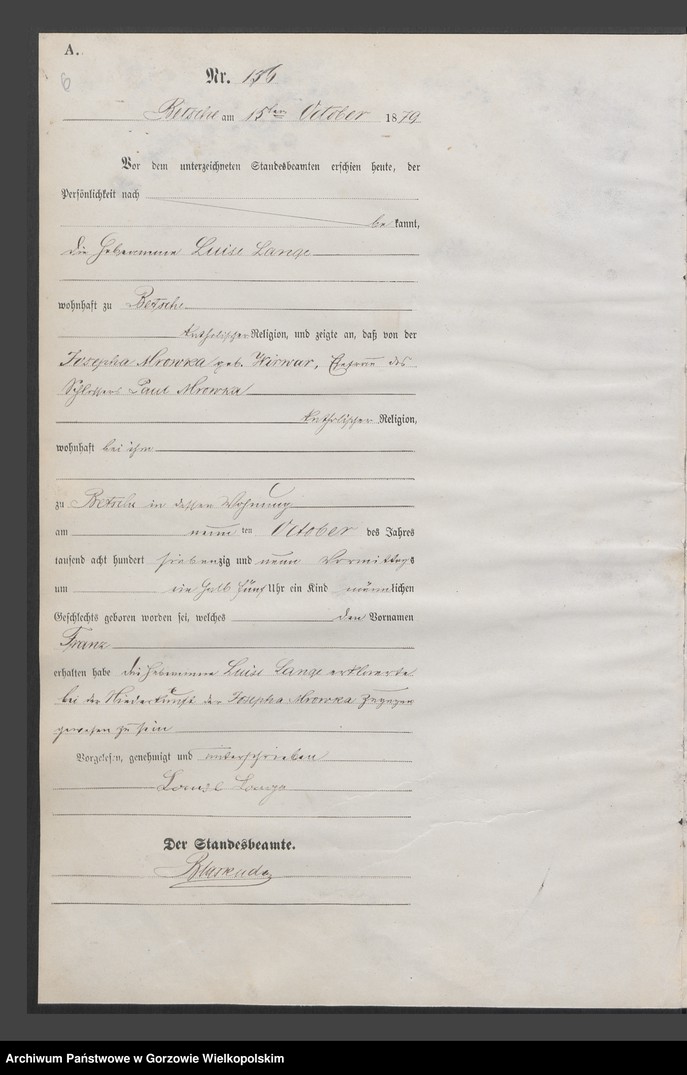 A.
Nr. 136
Betsche am 15ten October 1879
Vor dem unterzeichneten Standesbeamten erschien heute, der
Persönlichkeit nach
be kannt,
die Hebamme Luise Lange
wohnhaft zu Betsche
katholischer Religion, und zeigte an, daß von der
Josepha Mrowka geb. Ehefrau des
Schlossers Paul Mrowka
katholischer Religion,
wohnhaft bei ihm
zu Betsche in dessen Wohnung
am neun ten October des Jahres
tausend acht hundert siebenzig und neun Vormittags
um ein halb fünf Uhr ein Kind männlichen
Geschlechts geboren worden sei, welches den Vornamen
Franz
erhalten habe die Hebamme Luise Lange erklaerte
bei der Niederkunft der Josepha Mrowka zugegen
gewesen zu sein
Vorgelesen, genehmigt und unterschrieben
Louise Lange
Der Standesbeamte.
Archiwum Państwowe w Gorzowie Wielkopolskim